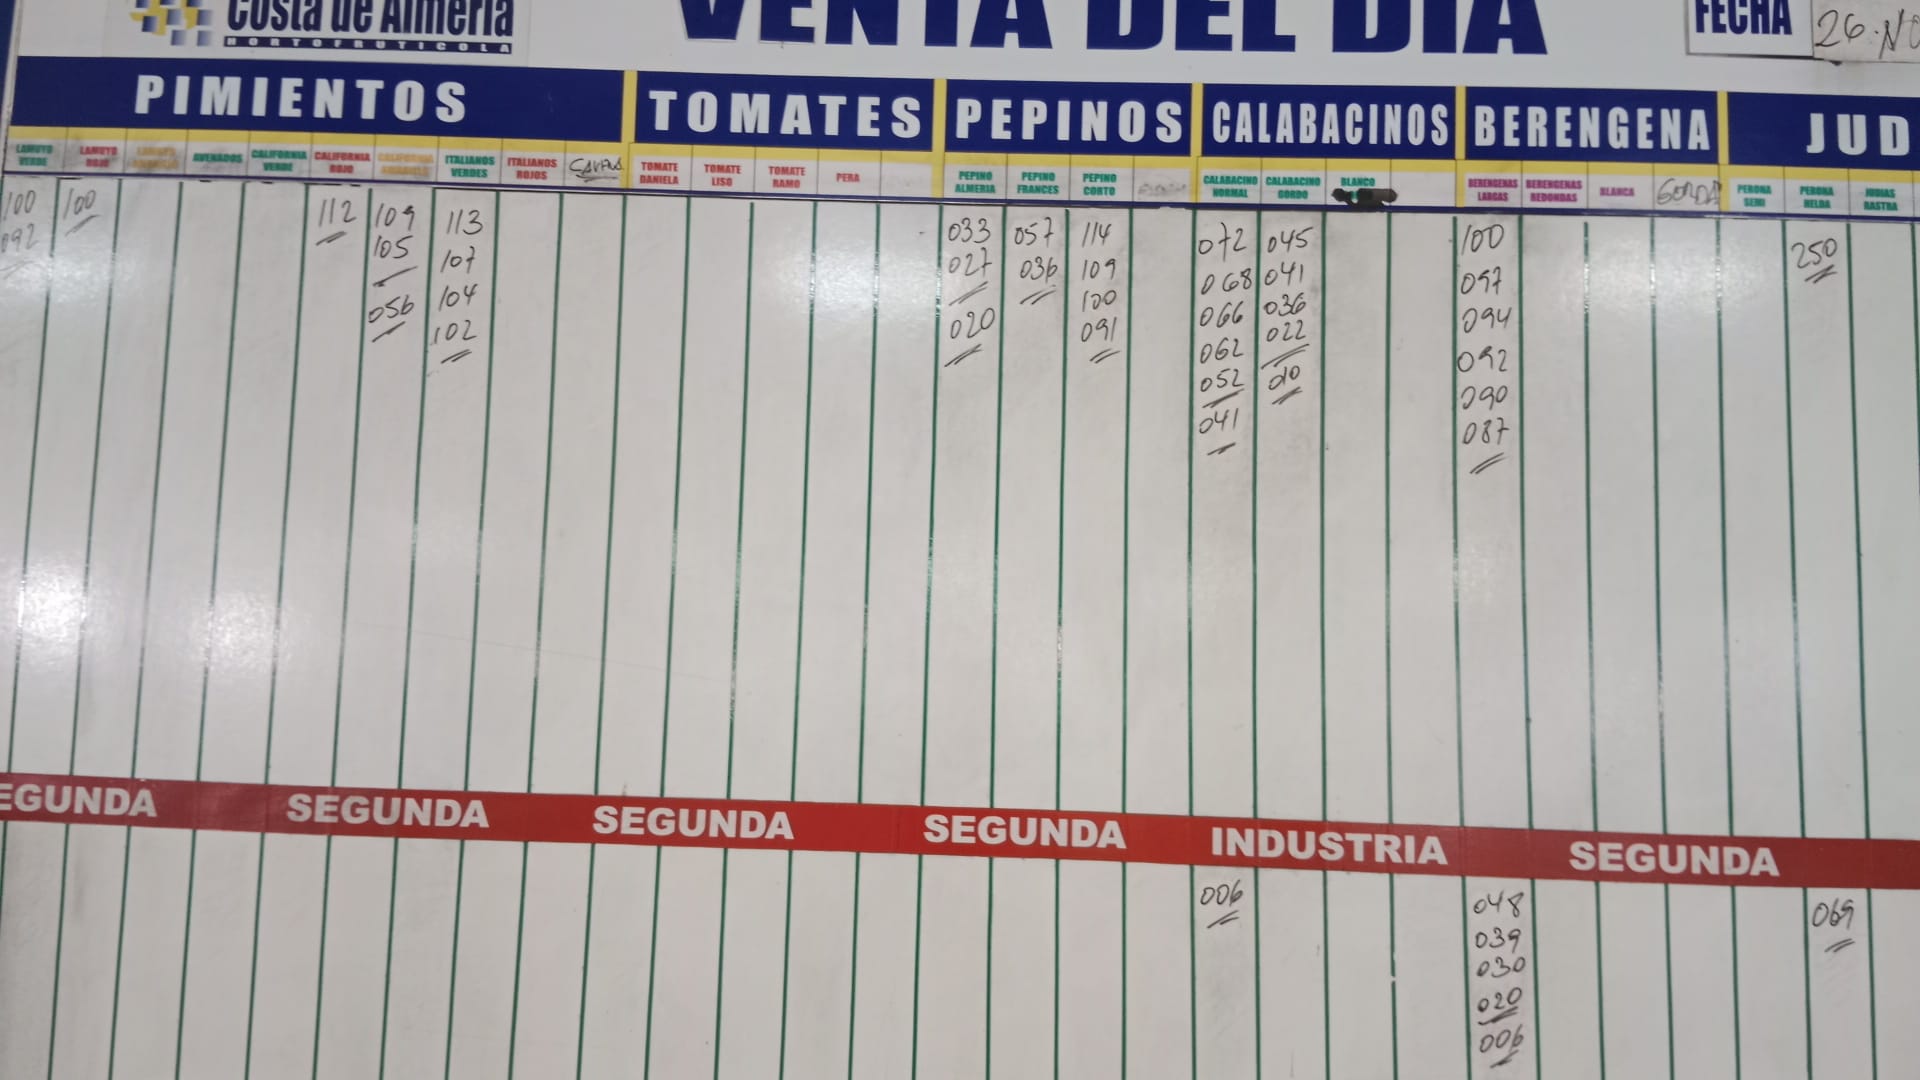 Costa de Almería
HORTOFRUTICOLA
VENTA DEL DIA
FECHA
26·NO
PIMIENTOS
TOMATES
PEPINOS
CALABACINOS
BERENGENA
JUD
LAMUYO VERDE
LAMUYO ROJO
LAMUYO AMARILLO
ASURADOS
CALIFORNIA VERDE
CALIFORNIA ROJO
CALIFORNIA AMARILLO
ITALIANOS VERDES
ITALIANOS ROJOS
TOMATE DANIELA
TOMATE LISO
TOMATE RAMO
PERA
PEPINO ALMERIA
PEPINO FRANCES
PEPINO CORTO
CALABACINO NORMAL
CALABACINO GORDO
BLANCO
BERENGENAS LARGAS
BERENGENAS REDONDAS
BLANCA
GORDA
PERONA SEMI
PERONA HELDA
JUDIAS RASTRA
100
092
100
112
109
105
056
113
107
104
102
033
027
020
057
036
114
109
100
091
072
068
066
062
052
041
045
041
036
022
010
100
097
094
092
090
087
250
EGUNDA
SEGUNDA
SEGUNDA
SEGUNDA
INDUSTRIA
SEGUNDA
006
048
039
030
020
006
069